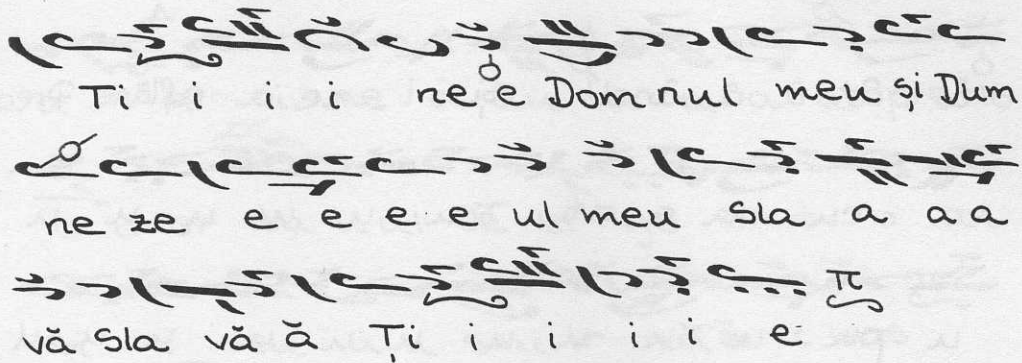 Ti i i i ne e Dom nul meu și Dum
ne ze e e e e ul meu Sla a a a
vă Sla vă ă Ți i i i i e